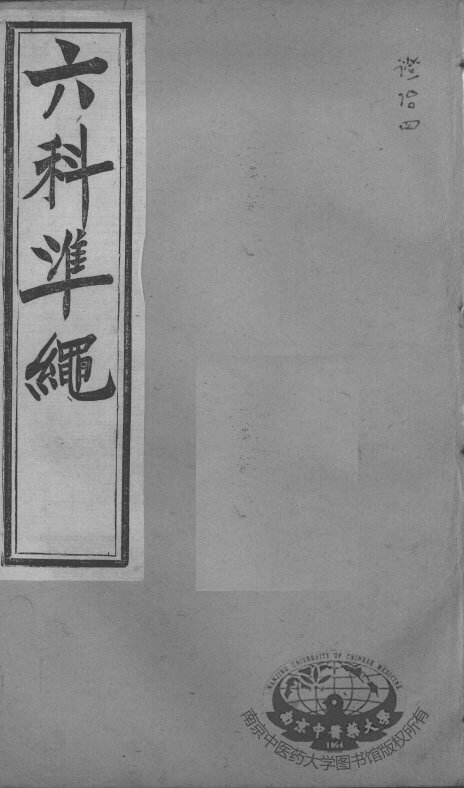 六科準繩
證治四
NANJING UNIVERSITY OF CHINESE MEDICINE
南京中醫藥大學
1954
南京中医药大学图书馆版权所有